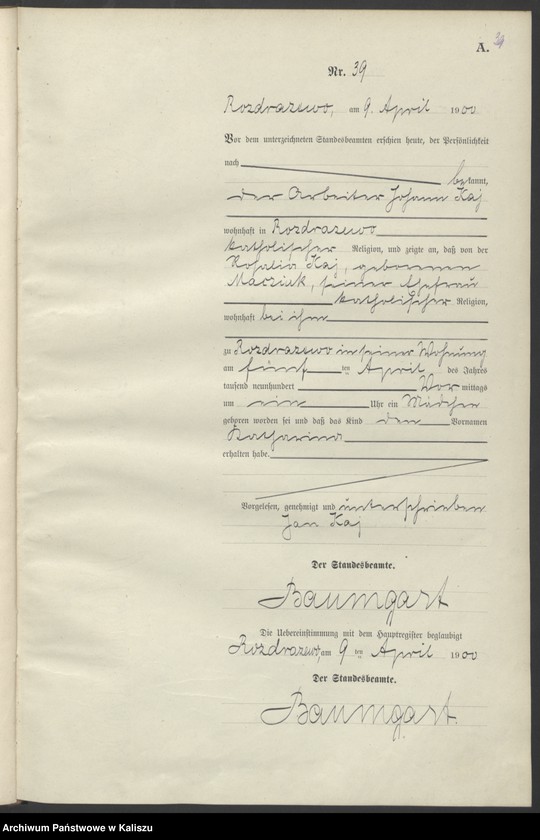 A. 39
Nr. 39
Rozdrazewo, am 9. April 1900
Vor dem unterzeichneten Standesbeamten erschien heute, der Persönlichkeit
nach
bekannt,
der Arbeiter Johann Kaj
wohnhaft in Rozdrazewo
katholischer Religion, und zeigte an, daß von der
Rosalia Kaj, geborenen
Maczuk, seiner Ehefrau
katholischer Religion,
wohnhaft bei ihm
zu Rozdrazewo in seiner Wohnung
am fünften April des Jahres
tausend neunhundert Vormittags
um ein Uhr ein Mädchen
geboren worden sei und daß das Kind den Vornamen
Katharina
erhalten habe.
Vorgelesen, genehmigt und unterschrieben
Jan Kaj
Der Standesbeamte.
Baumgart
Die Uebereinstimmung mit dem Hauptregister beglaubigt
Rozdrazewo, am 9ten April 1900
Der Standesbeamte.
Baumgart.
Archiwum Państwowe w Kaliszu